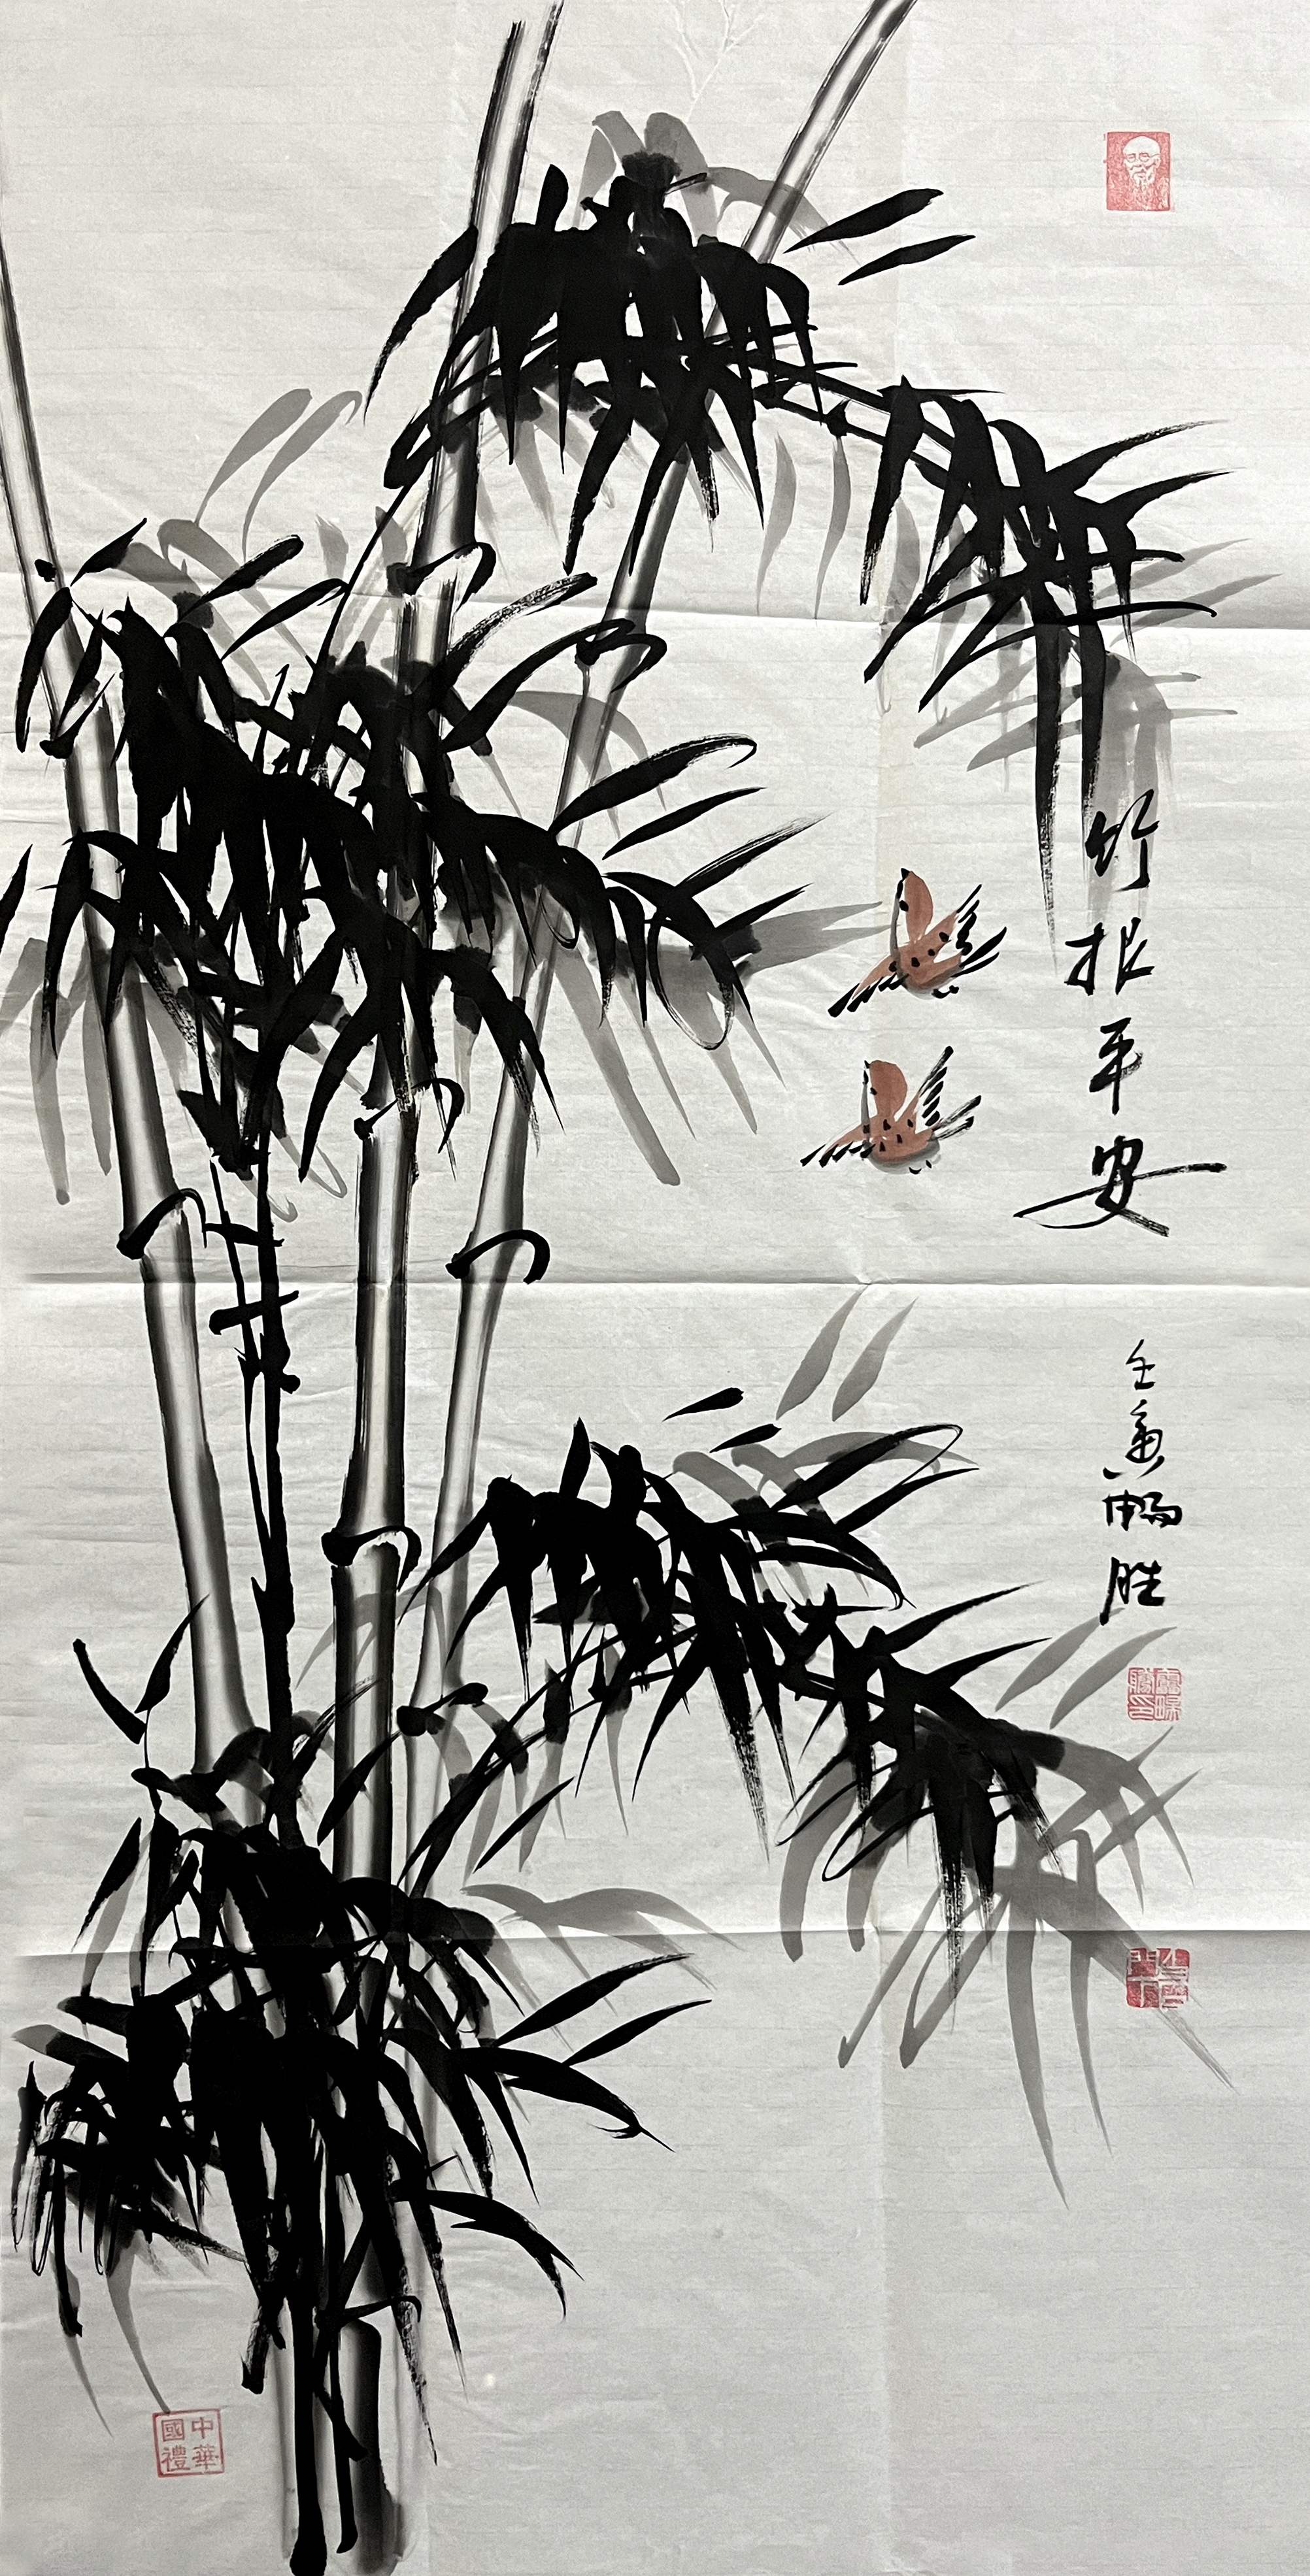 竹报平安
壬寅暢胜
中華國禮